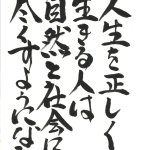 人生を正しく
生きる人は
自然と社会に
尽くすようにな